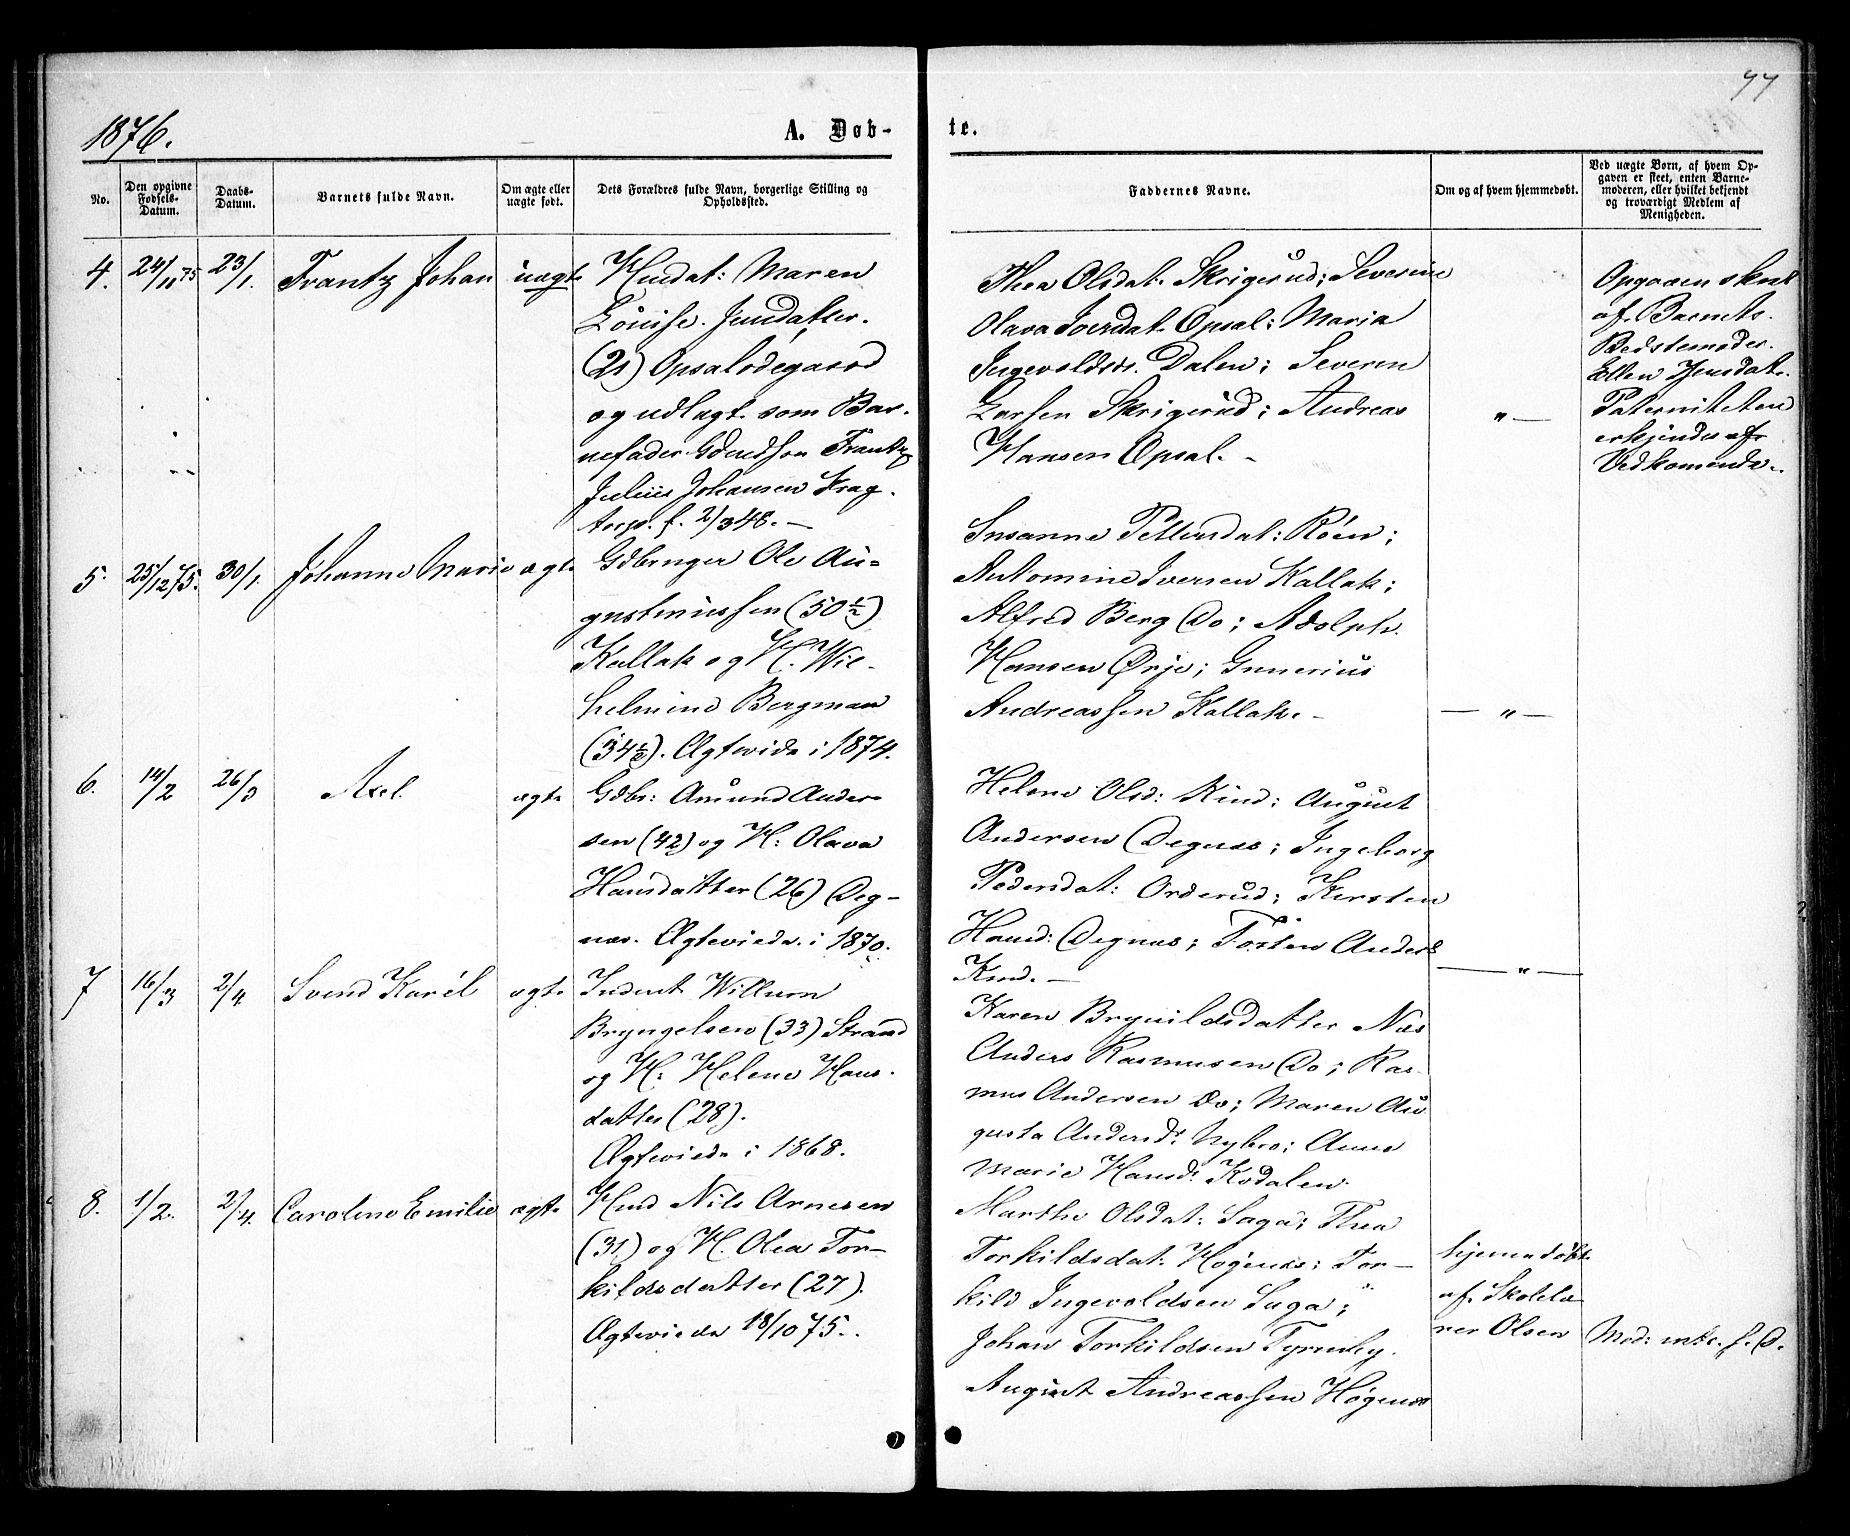 77
1876.
A. Døb-
te.
No.
Den opgivne Fødsels-Datum.
Daabs-Datum.
Barnets fulde Navn.
Om ægte eller uægte født.
Dets Forældres fulde Navn, borgerlige Stilling og Opholdssted.
Faddernes Navne.
Om og af hvem hjemmedøbt.
Ved uægte Børn, af hvem Op-
gaven er skeet, enten Barne-
moderen, eller hvilket bekjendt
og troværdigt Medlem af
Menigheden.
4. 24/11 75 23/1. Frantz Johan uægte
Maren
Louise
(21) Opsalødegaard
og udlagt som Bar-
nefader Frantz
Julius Johansen
2/348. —
Thea Olsdat. Skrigerud; Severine
Olava Iversdat. Opsal; Maria
Ingevoldsd. Dalen; Severin
Larsen Skrigerud; Andreas
Hansen Opsal. -
" —
Opgaven skeet
af Barnets
Bedstemoder
Ellen Jensdat.
Paterniteten
erkjendes af
Vedkomende.
5. 25/12 75. 30/1. Johanne Marie ægte
Gdbruger Ole Au-
gustinussen (50½)
Kallak og H. Wil-
helmine Bergman
(34½). Ægteviede i 1874.
Susanne Pettersdat: Röen;
Antomine Iversen Kallak;
Alfred Berg Do; Adolph
Hansen Ørje; Gunerius
Andreassen Kallak. -
— " —
6. 14/2 26/3 Axel ægte
Gdbr: Amund Ander-
sen (42) og H: Olava
Hansdatter (26) Deg-
næs. Ægteviede i 1870.
Helene Olsd: Kind; August
Andersen Degnæs; Ingeborg
Pedersdat: Orderud; Kersten
Hansd: Degnæs; Torsten Anders
Kind. —
— " —
7 16/3 2/4 Svend Karél ægte
Inderst Willum
Bryngelsen (33) Strand
og H: Helene Hans-
datter (28).
Ægteviede i 1868.
Karen Brynildsdatter Næs
Anders Rasmusen Do; Ras-
mus Andersen Do; Maren Au
gusta Andersd: Nybro; Anne
Marie Hansd: Kodalen
8. 1/2. 2/4. Caroline Emilie ægte
Nils Arnesen
(31) og H. Olea Tor-
kildsdatter (27).
Ægteviede 18/10 75.
Marthe Olsdat: Saga; Thea
Torkildsdat. Høgenæs; Tor-
kild Ingevoldsen Saga;
Johan Torkildsen
August Andreassen Høgenæs
hjemmedøbt
af Skolelæ
rer Olsen